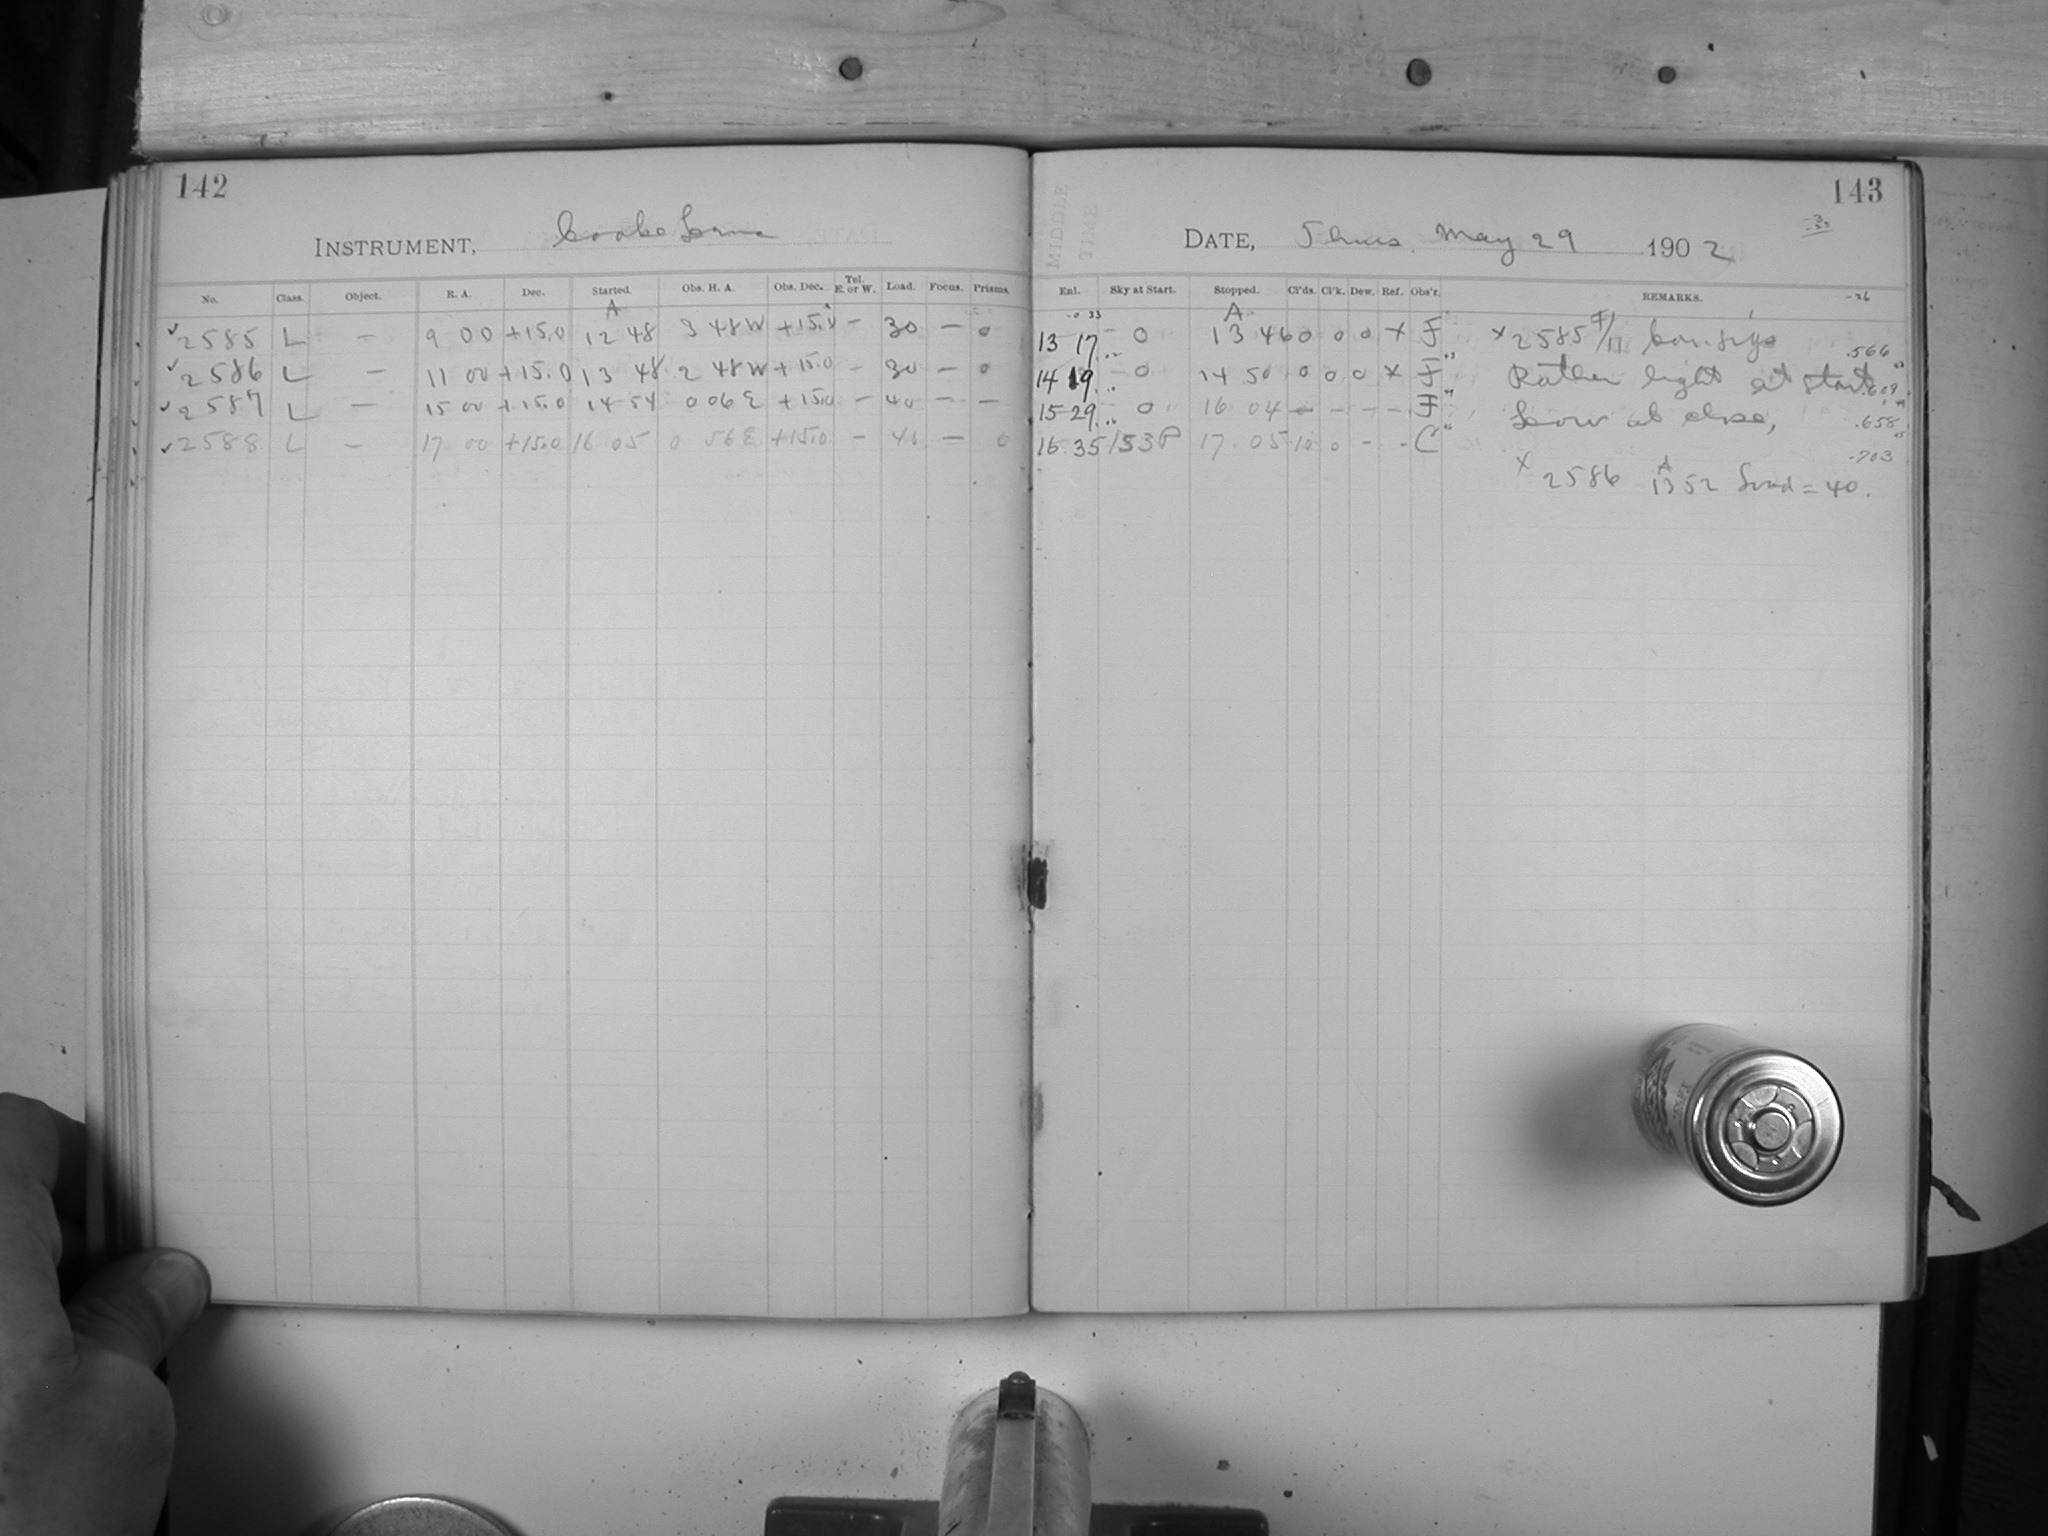 142
INSTRUMENT, Cooke Lens
No. Class. Object. R. A. Dec. Started. Obs. H. A. Obs. Dec. Tel. E. or W. Load. Focus. Prisms.
A
2585 L — 9 00 +15.0 12 48 3 48 W +15.0 — 30 — 0
2586 L — 11 00 +15.0 13 48 2 48 W +15.0 — 30 — 0
2587 L — 15 00 +15.0 14 54 0 06 E +15.0 — 40 — —
2588 L — 17 00 +15.0 16 05 0 56 E +15.0 — 40 — 0
143
MIDDLE
TIME
DATE, Thurs. May 29 1902
Enl. Sky at Start. Stopped. Cl'ds. Cl'k. Dew. Ref. Obs'r. REMARKS.
A
13 17 0 13 46 0 0 0 x F x 2585
14 19 0 14 50 0 0 0 x F Rather light at start .609
15 29 0 16 04 – – – – F at close, .658
16 35 153P 17 05 10 0 – – C .703
x 2586 A 13 52 Load = 40.